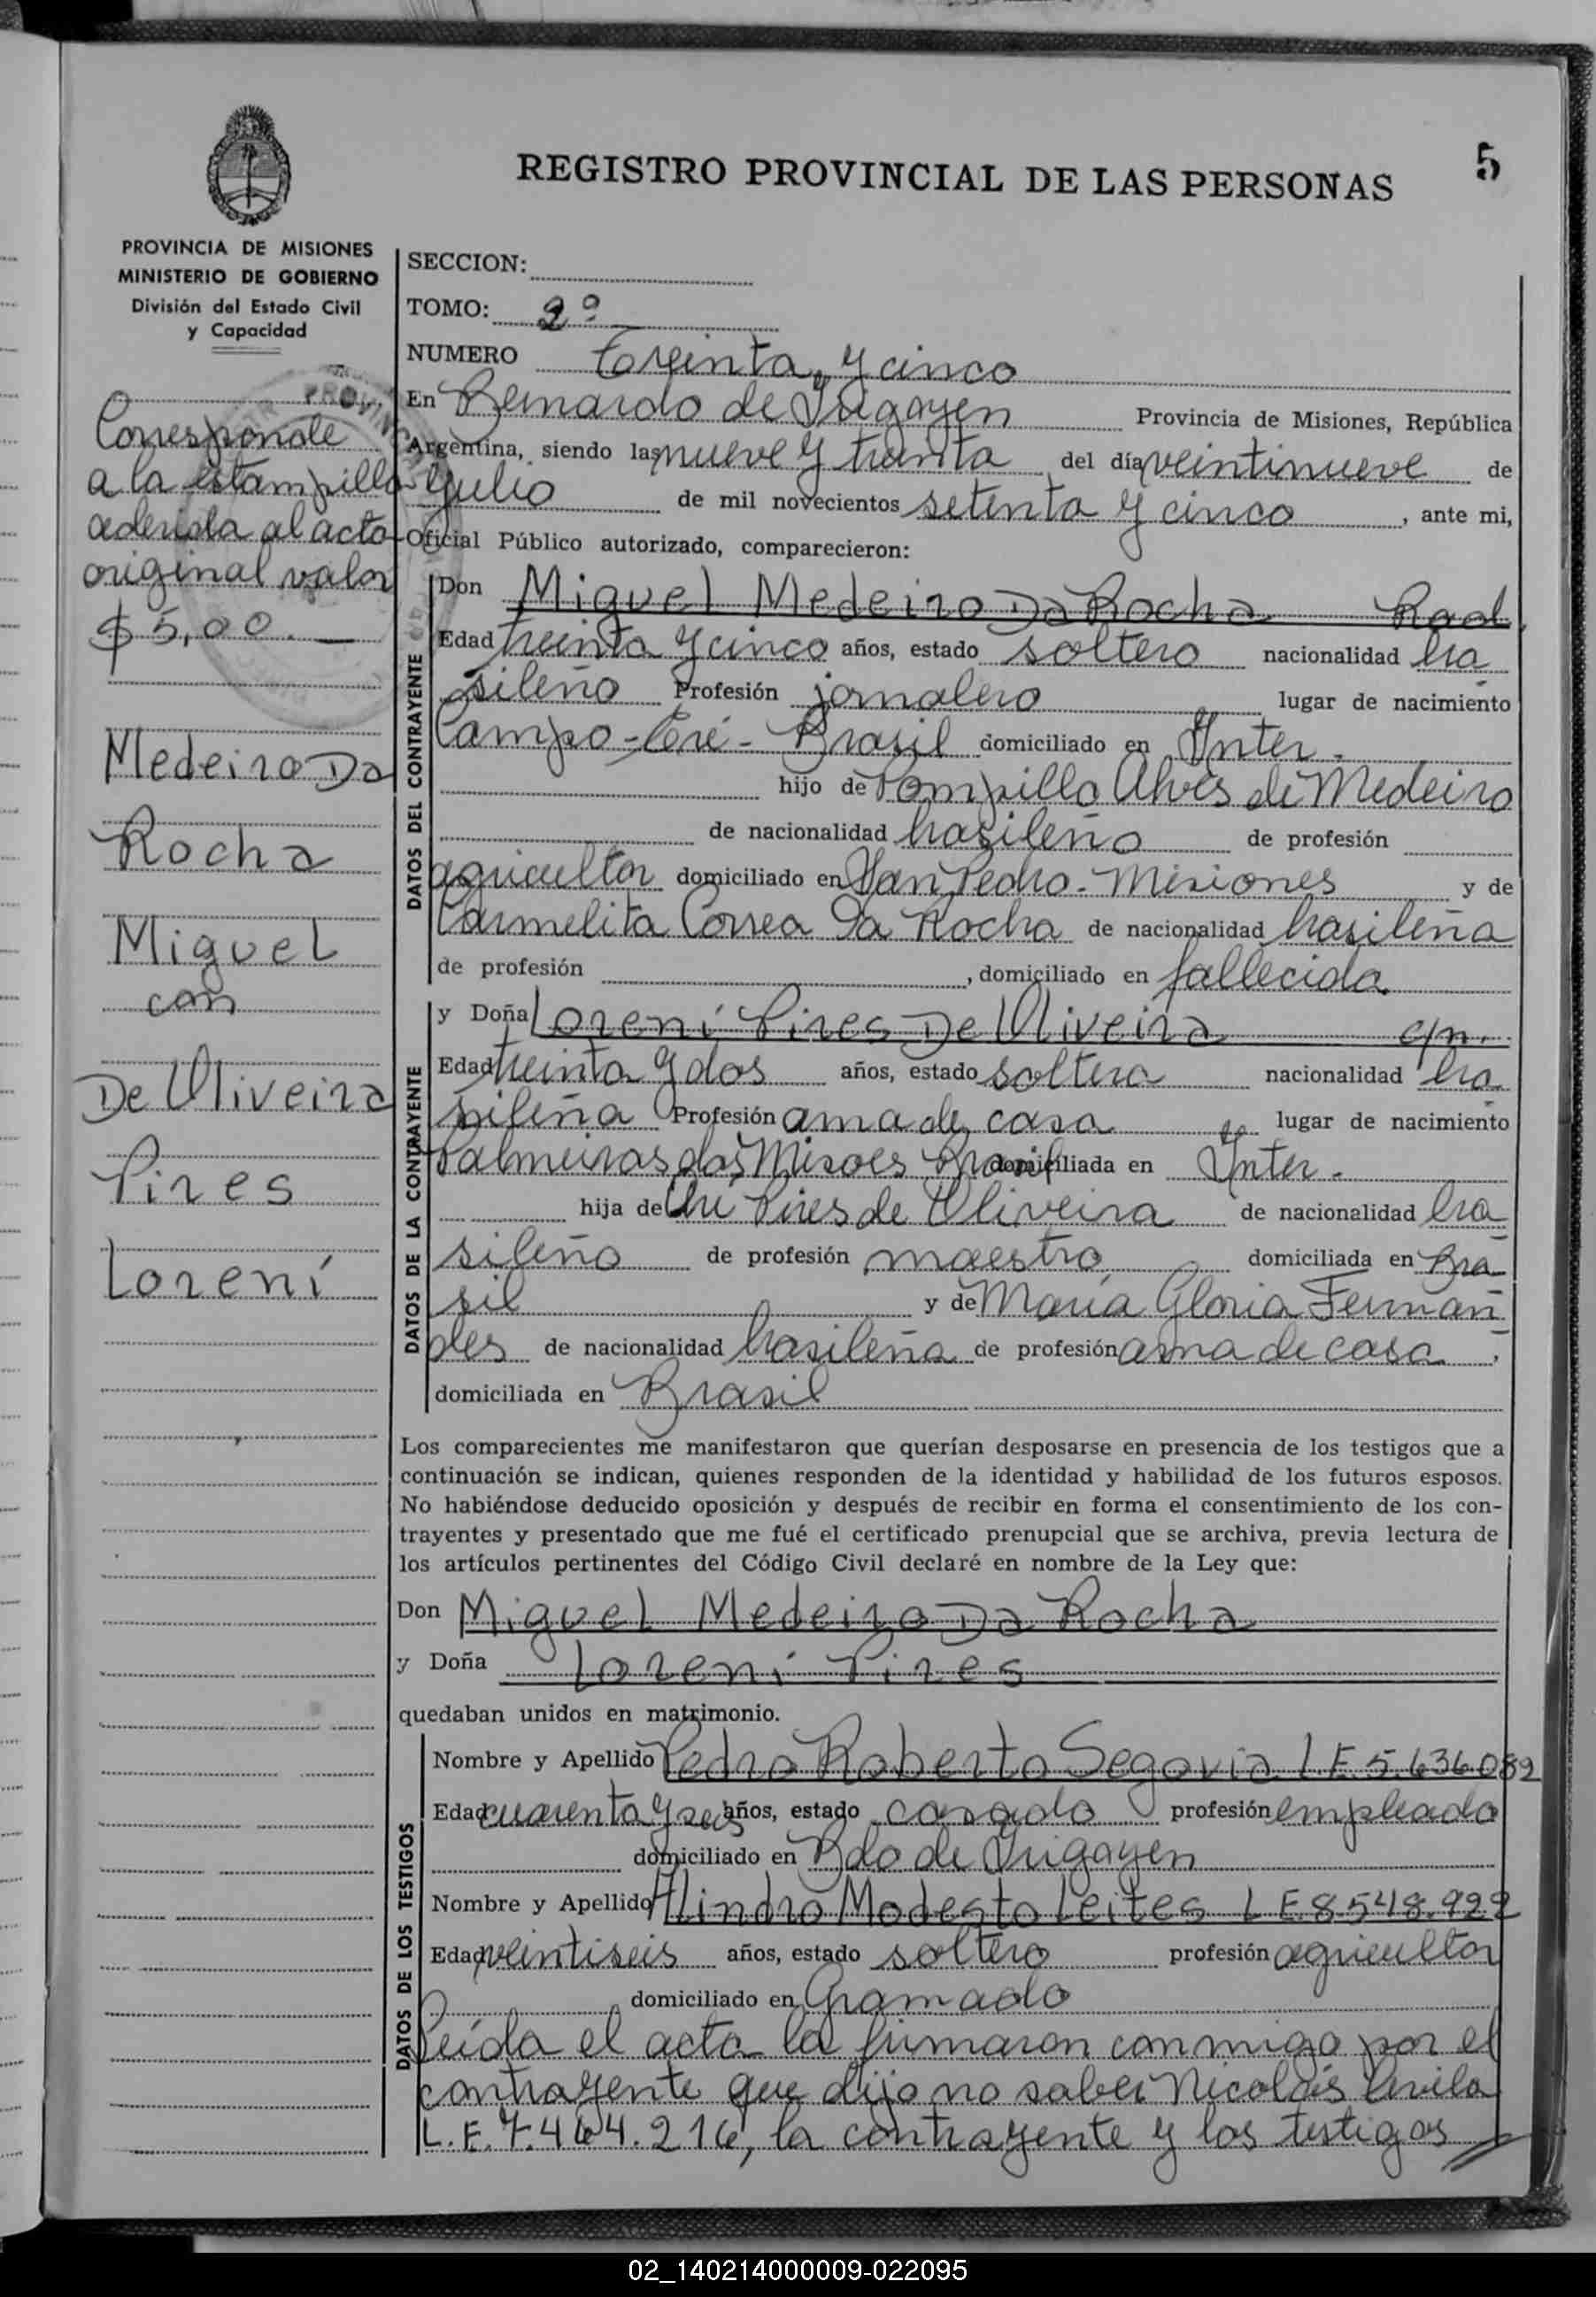 5
REGISTRO PROVINCIAL DE LAS PERSONAS
PROVINCIA DE MISIONES
MINISTERIO DE GOBIERNO
División del Estado Civil
y Capacidad
Corresponde
a la estampilla
aderida al acto
original valor
$ 5,00.—
Medeiro Da
Rocha
Miguel
con
De Oliveira
Pires
Lorení
SECCION:
TOMO: 2º
NUMERO Treinta y cinco
En Bernardo de Irigoyen Provincia de Misiones, República
Argentina, siendo las nueve y treinta del día veintinueve de
Julio de mil novecientos setenta y cinco, ante mi,
Oficial Público autorizado, comparecieron:
DATOS DEL CONTRAYENTE
Don Miguel Medeiro Da Rocha
Edad treinta y cinco años, estado soltero nacionalidad bra
sileño Profesión jornalero lugar de nacimiento
Campo-Eré-Brasil domiciliado en Inter.
hijo de Pompilio Alves de Medeiro
de nacionalidad brasileño de profesión
agricultor domiciliado en San Pedro-Misiones y de
Carmelita Correa Da Rocha de nacionalidad brasileña
de profesión , domiciliado en fallecida
DATOS DE LA CONTRAYENTE
y Doña Lorení Pires De Oliveira
Edad treinta y dos años, estado soltera nacionalidad bra
sileña Profesión ama de casa lugar de nacimiento
Palmeiras das Misoes Brasil domiciliada en Inter.
hija de Pires de Oliveira de nacionalidad bra
sileño de profesión maestro domiciliada en Bra
sil y de María Gloria Fernan
des de nacionalidad brasileña de profesión ama de casa,
domiciliada en Brasil
Los comparecientes me manifestaron que querían desposarse en presencia de los testigos que a
continuación se indican, quienes responden de la identidad y habilidad de los futuros esposos.
No habiéndose deducido oposición y después de recibir en forma el consentimiento de los con-
trayentes y presentado que me fué el certificado prenupcial que se archiva, previa lectura de
los artículos pertinentes del Código Civil declaré en nombre de la Ley que:
Don Miguel Medeiro Da Rocha
y Doña Loreni Pires
quedaban unidos en matrimonio.
DATOS DE LOS TESTIGOS
Nombre y Apellido Pedro Roberto Segovia L E. 5.636.089
Edad cuarenta y seis años, estado casado profesión empleado
domiciliado en Bdo de Irigoyen
Nombre y Apellido Alindro Modesto Leites L E. 8.548.922
Edad veintiseis años, estado soltero profesión agricultor
domiciliado en Gramado
Leída el acta la firmaron conmigo por el
contrayente que dijo no saber Nicolás Avila
L.E. 7.464.216, la contrayente y los testigos
02_140214000009-022095